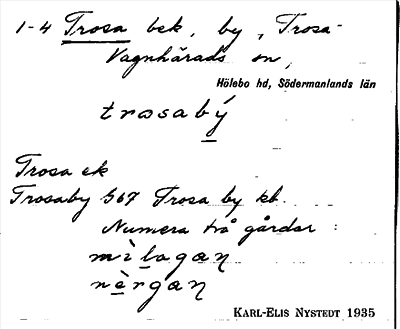 1-4 Trosa bek, by, Trosa-
Vagnhärads sn,
Hölebo hd, Södermanlands län
trosabý
Trosa ek
Trosaby 567 Trosa by kb.
Numera två gårdar:
mìlagaņ
nèrgaņ
KARL-ELIS NYSTEDT 1935